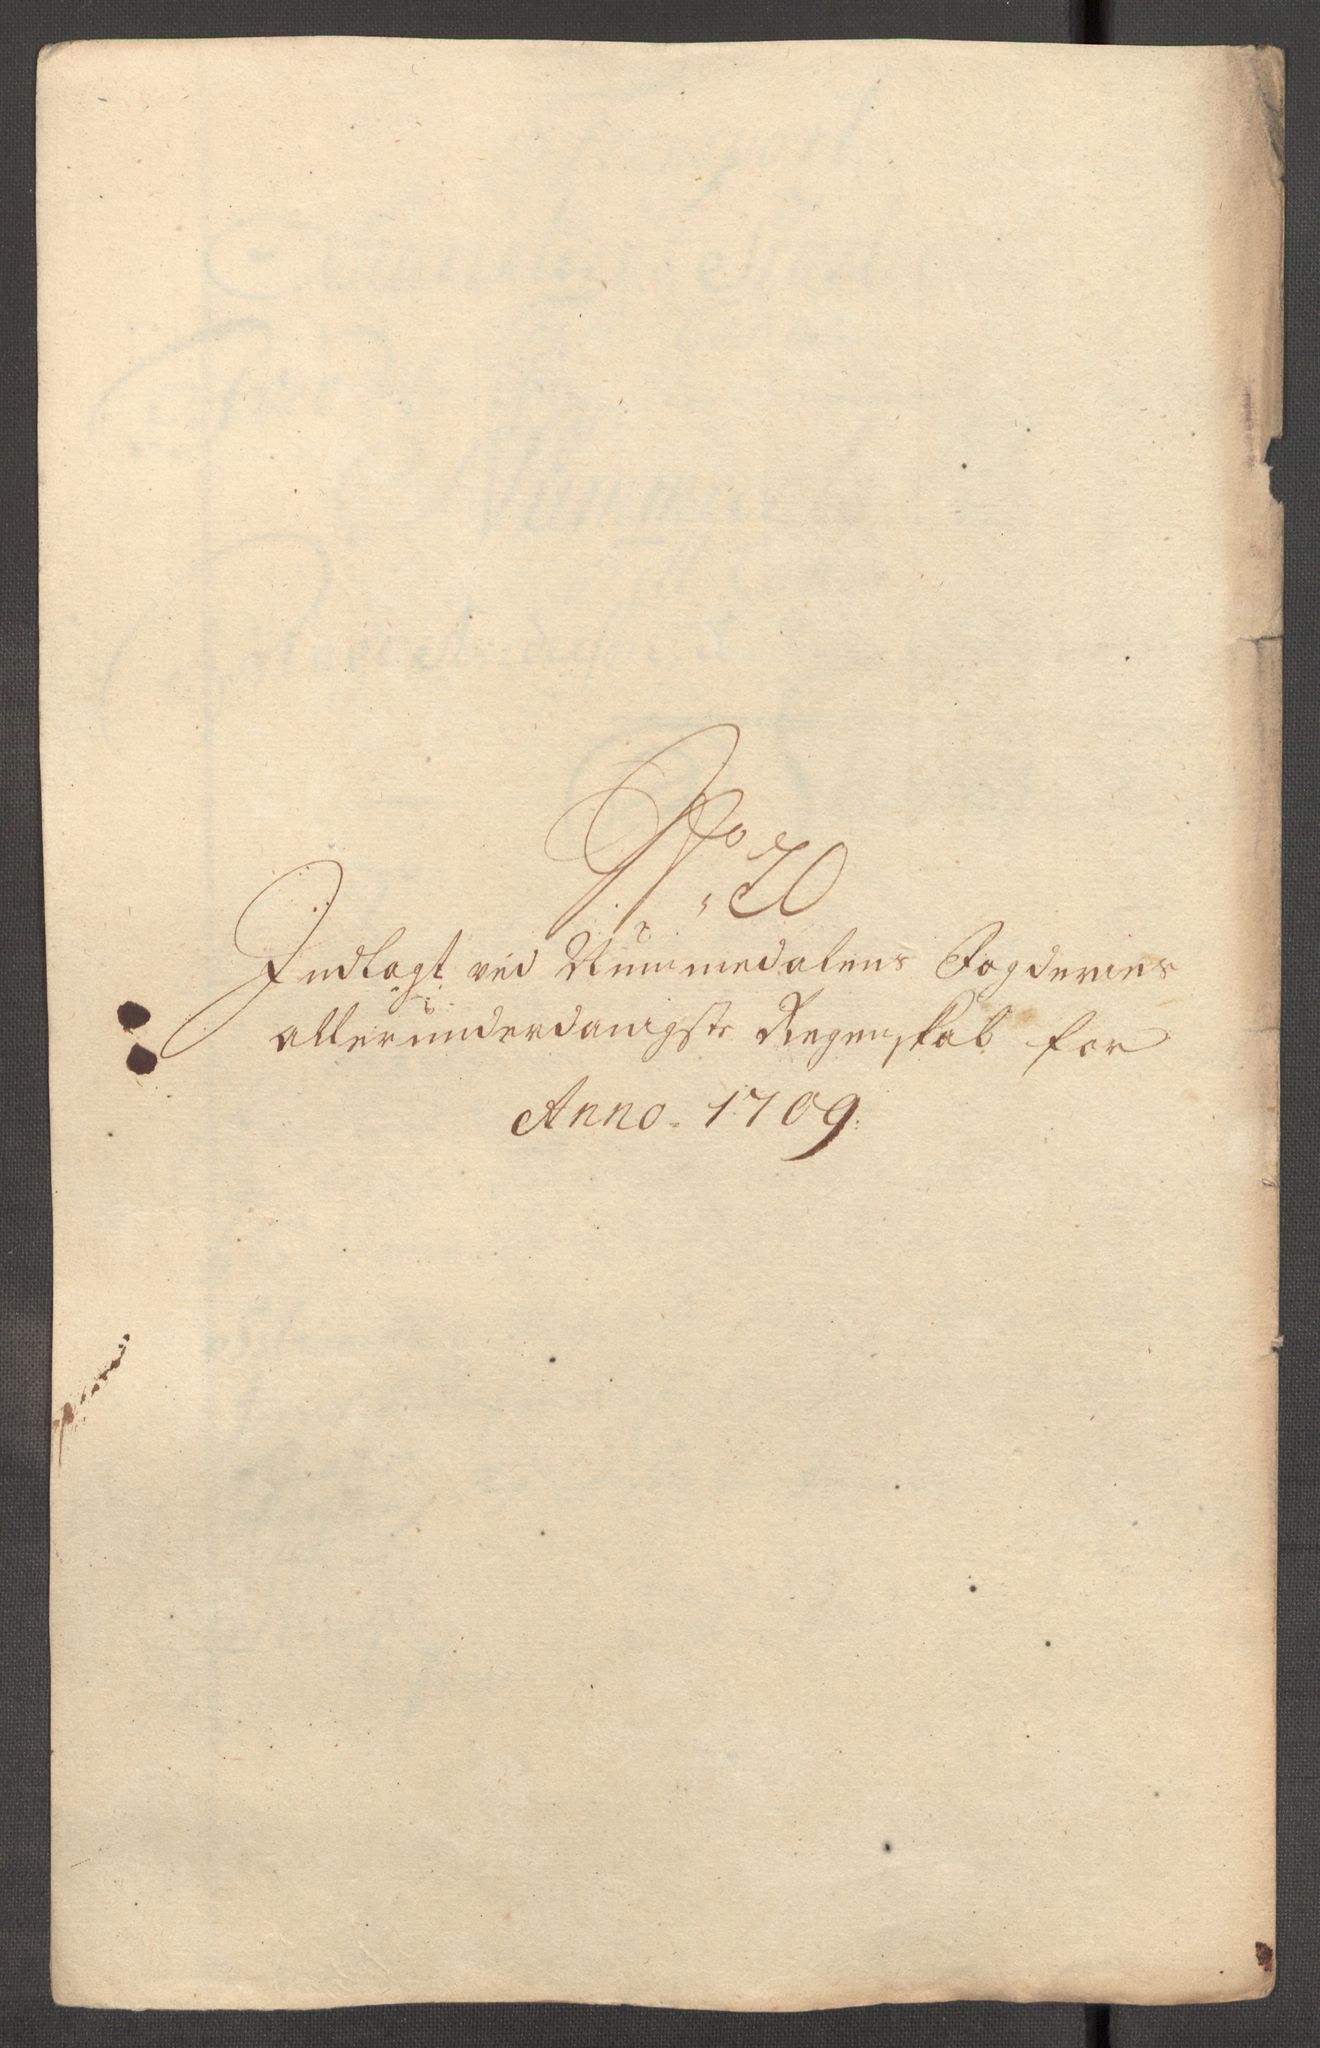 No. 20
Indlagt ved Nummedalens Fogderies
allerunderdanigste Regenskab for
Anno. 1709.